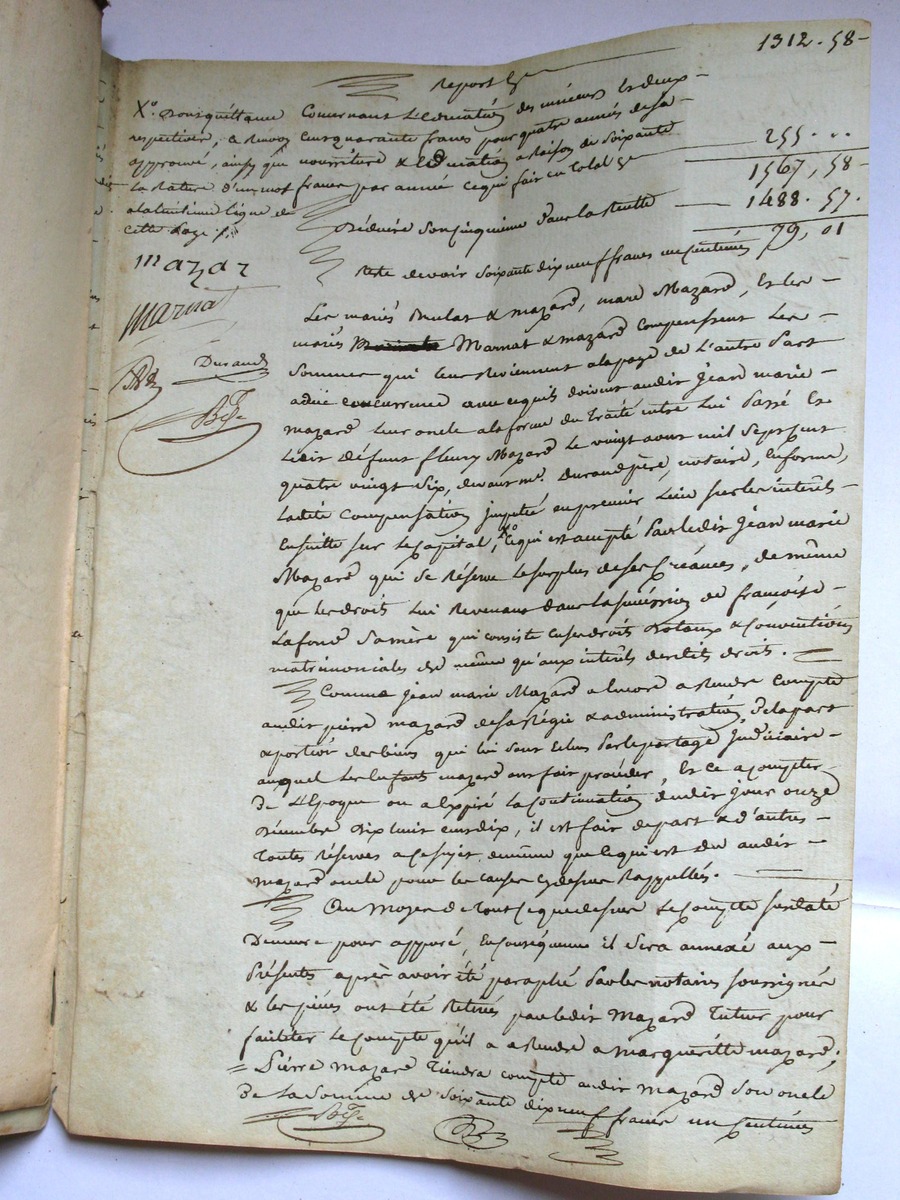 Report cy 1312 . 58
Concernant L'Education des mineurs Et deux
Cens quarante francs pour quatre années de sa
nourriture & Education a Raison de soixante
francs par année ce qui fait en total cy 255 . ..
1567, 58
Déduire Son cinquieme dans la Recette 1488 . 57 .
Reste devoir Soixante dix neuf francs un Centimes 79, 01
Xo. Jusqu'à que
respective, ce Renvoy
approuvé, ainsy que
la Rature d'un mot
a la troisieme ligne de
cette page ./.
mazar
Marnat
Durand
Les mariés Mulat & mazard, mare Mazard, Et les
mariés Marnat & mazard Compensent Les
Sommes qui leur Reviennent a la page de L'autre Part
a düe concurrence avec ce qu'ils doivent audit Jean marie
mazard leur oncle a la forme du Traité entre Lui Passé Et
Ledit Défunt fleury Mazard Le vingt aout mil Sept cent
quatre vingt Six, devant me. Durand père, notaire, En forme,
Ladite Compensation imputée en premier Lieu Sur les interêts
Ensuitte Sur le Capital, Xo Ce qui est accepté Par ledit Jean marie
Mazard qui se Réserve le surplus de ses Créances, de même
que les droits Lui Revenant dans la succession de françoise
Lafond Sa mère qui consiste En ses droits Dotaux & Conventions
matrimoniales de même qu'aux intérêts desdits droits.
Comme Jean marie Mazard a Encore a Rendre Compte
audit pierre mazard de sa Régie & administration, de la part
& portion des biens qui lui Sont Echus Par le partage Judiciaire
auquel les Enfants mazard ont fait procéder, Et ce a compter
de L'Epoque ou a Expiré la Continuation dudit Jour onze
Décembre Dix huit cens dix, il est fait depart & d'autres
Toutes Réserves a Ce sujet, de même que ce qui est Du audit
mazard oncle pour les causes cy dessus Rappellées.
Au Moyen de tout ce que dessus Le Compte Susdaté
Demeure pour appuré, En Conséquence il Sera annexé aux
Présentes après avoir été paraphé Par les notaires soussignés
& les pièces ont été Retirés par ledit Mazard Tuteur pour
faciliter Le Compte qu'il a a Rendre a Margueritte mazard ;
= Pierre mazard Tiendra compte audit Mazard Son oncle
De la Somme de Soixante dix neuf francs un Centimes